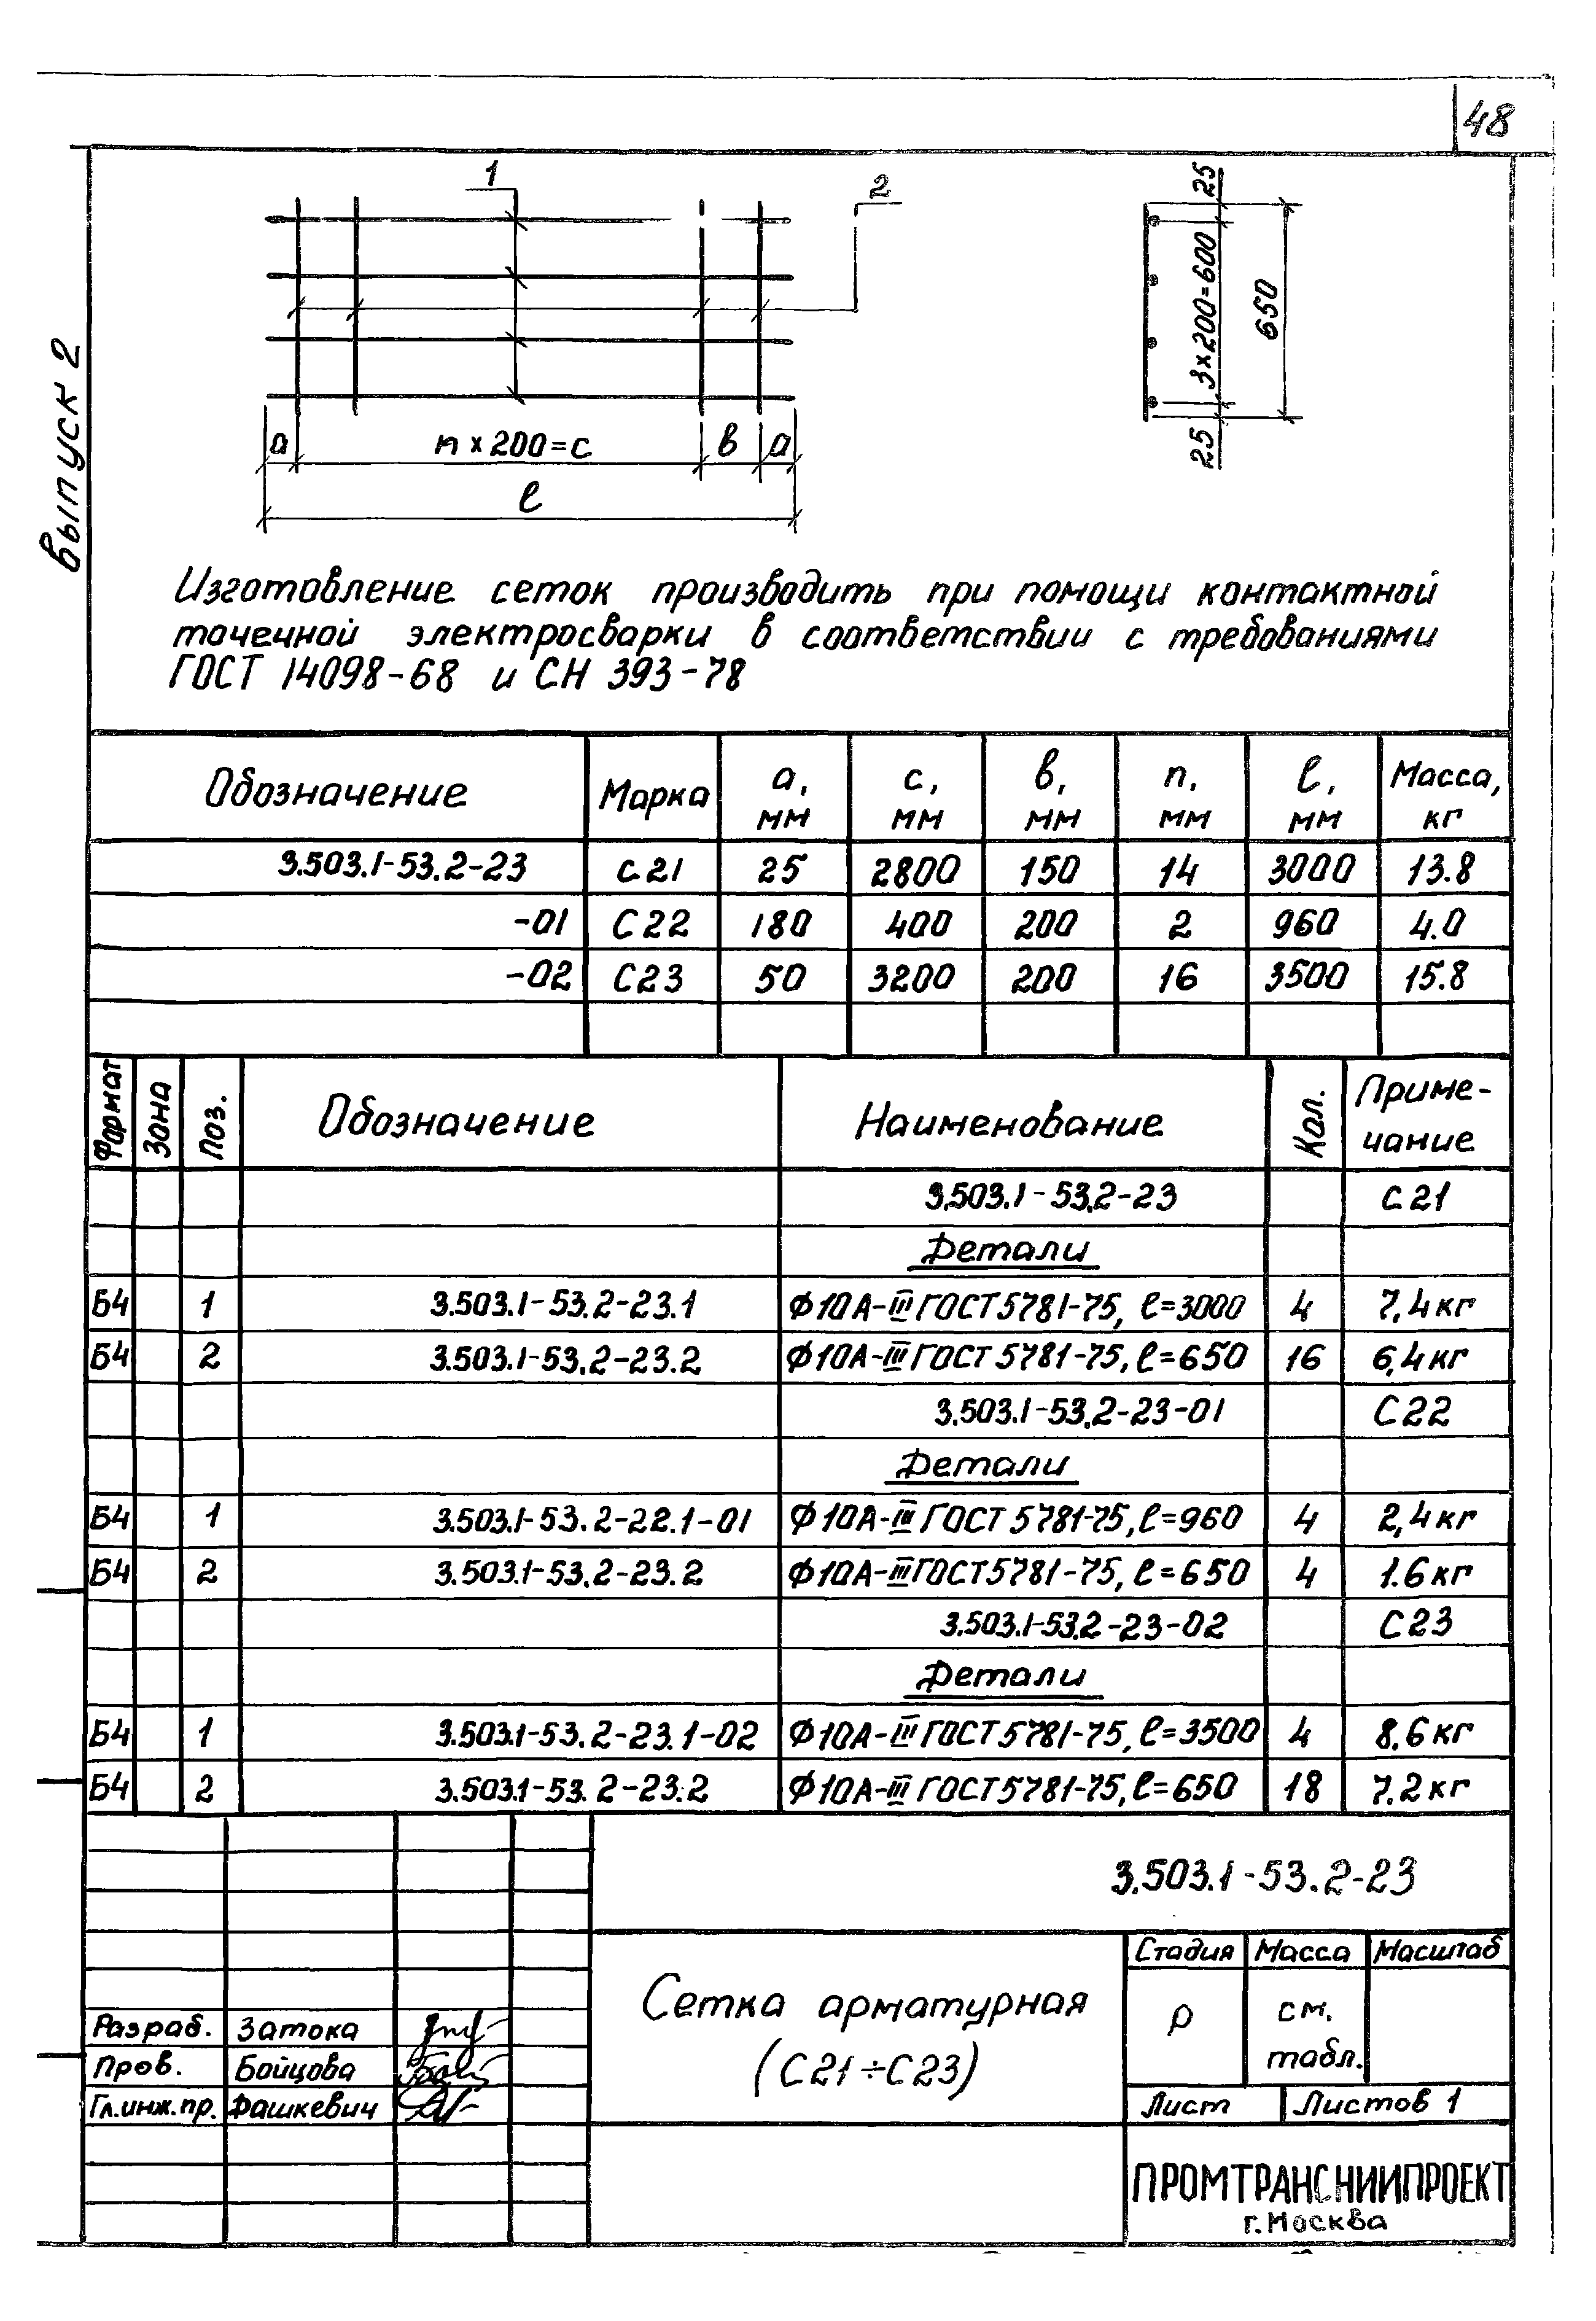 48
выпуск 2
1
2
а
n x 200 = с
в
а
ℓ
25
3x200=600
650
25
Изготовление сеток производить при помощи контактной
точечной электросварки в соответствии с требованиями
ГОСТ 14098-68 и СН 393-78
Обозначение Марка а, мм с, мм в, мм n, мм ℓ, мм Масса, кг
3.503.1-53.2-23 С21 25 2800 150 14 3000 13.8
-01 С22 180 400 200 2 960 4.0
-02 С23 50 3200 200 16 3500 15.8
Формат Зона Поз. Обозначение Наименование Кол. Приме-чание
3.503.1-53.2-23 С21
Детали
Б4 1 3.503.1-53.2-23.1 Ф10А-III ГОСТ 5781-75, ℓ=3000 4 7,4кг
Б4 2 3.503.1-53.2-23.2 Ф10А-III ГОСТ 5781-75, ℓ=650 16 6,4кг
3.503.1-53.2-23-01 С22
Детали
Б4 1 3.503.1-53.2-22.1-01 Ф10А-III ГОСТ 5781-75, ℓ=960 4 2,4кг
Б4 2 3.503.1-53.2-23.2 Ф10А-III ГОСТ 5781-75, ℓ=650 4 1.6кг
3.503.1-53.2-23-02 С23
Детали
Б4 1 3.503.1-53.2-23.1-02 Ф10А-III ГОСТ 5781-75, ℓ=3500 4 8.6кг
Б4 2 3.503.1-53.2-23.2 Ф10А-III ГОСТ 5781-75, ℓ=650 18 7.2кг
3.503.1-53.2-23
Сетка арматурная
(С21÷С23)
Стадия Масса Масштаб
Р см. табл.
Лист Листов 1
Разраб. Затока
Пров. Бойцова
Гл.инж.пр. Фашкевич
ПРОМТРАНСНИИПРОЕКТ
г. Москва